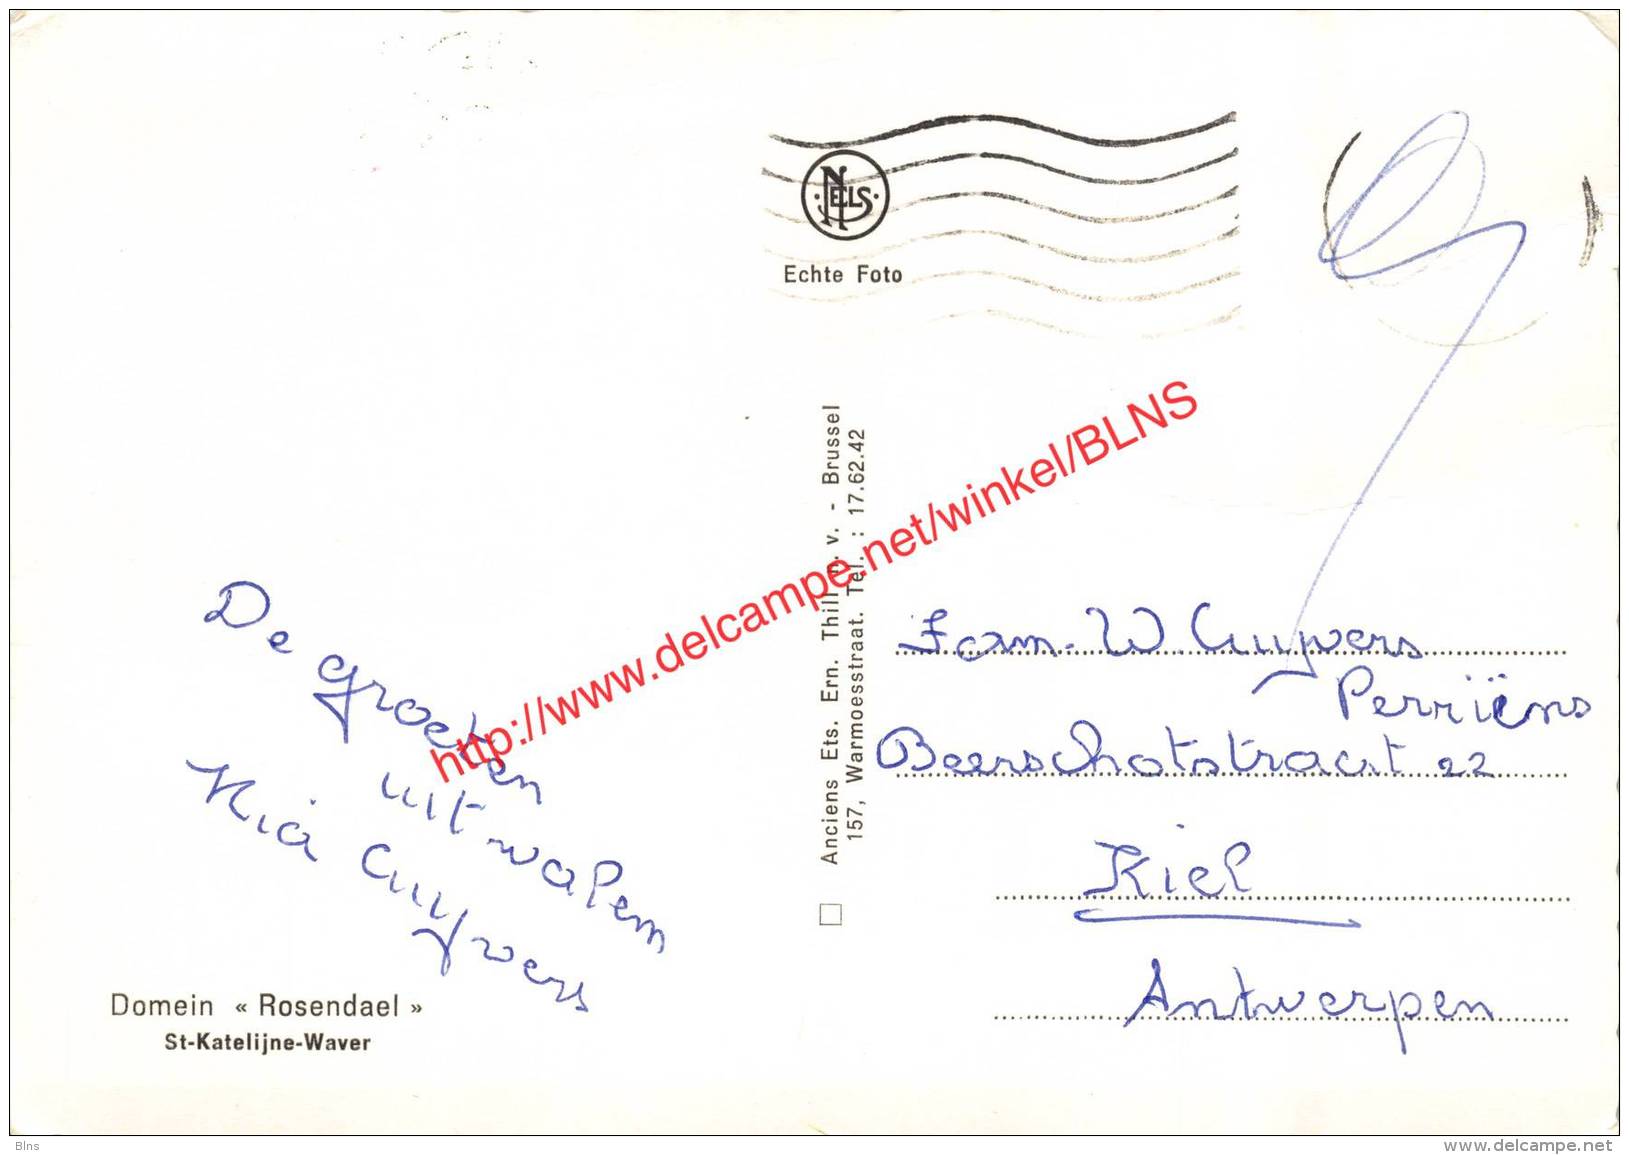 NELS
Echte Foto
De groeten
uit walem
Nia Cuyvers
Domein « Rosendael »
St-Katelijne-Waver
Anciens Ets. Ern. Thill n. v. - Brussel
157, Warmoesstraat. Tel. : 17.62.42
http://www.delcampe.net/winkel/BLNS
Fam. W. Cuyvers
Perriëns
Beerschotstraat 22
Kiel
Antwerpen
Blns
www.delcampe.net